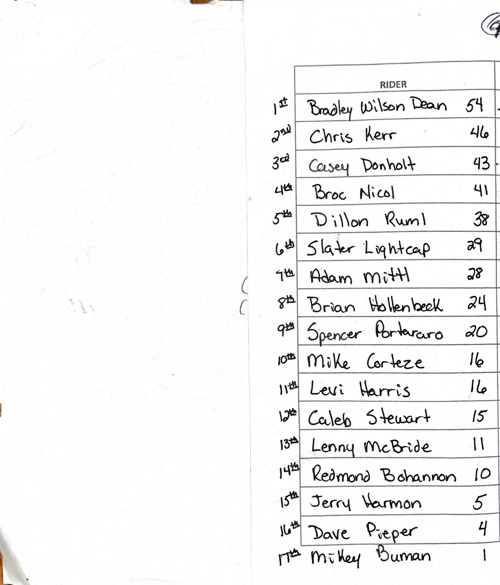 RIDER
1st Bradley Wilson Dean 54
2nd Chris Kerr 46
3rd Casey Donholt 43
4th Broc Nicol 41
5th Dillon Ruml 38
6th Slater Lightcap 29
7th Adam Mittl 28
8th Brian Hollenbeck 24
9th Spencer Portararo 20
10th Mike Corteze 16
11th Levi Harris 16
12th Caleb Stewart 15
13th Lenny McBride 11
14th Redmond Bohannon 10
15th Jerry Harmon 5
16th Dave Pieper 4
17th Mikey Buman 1